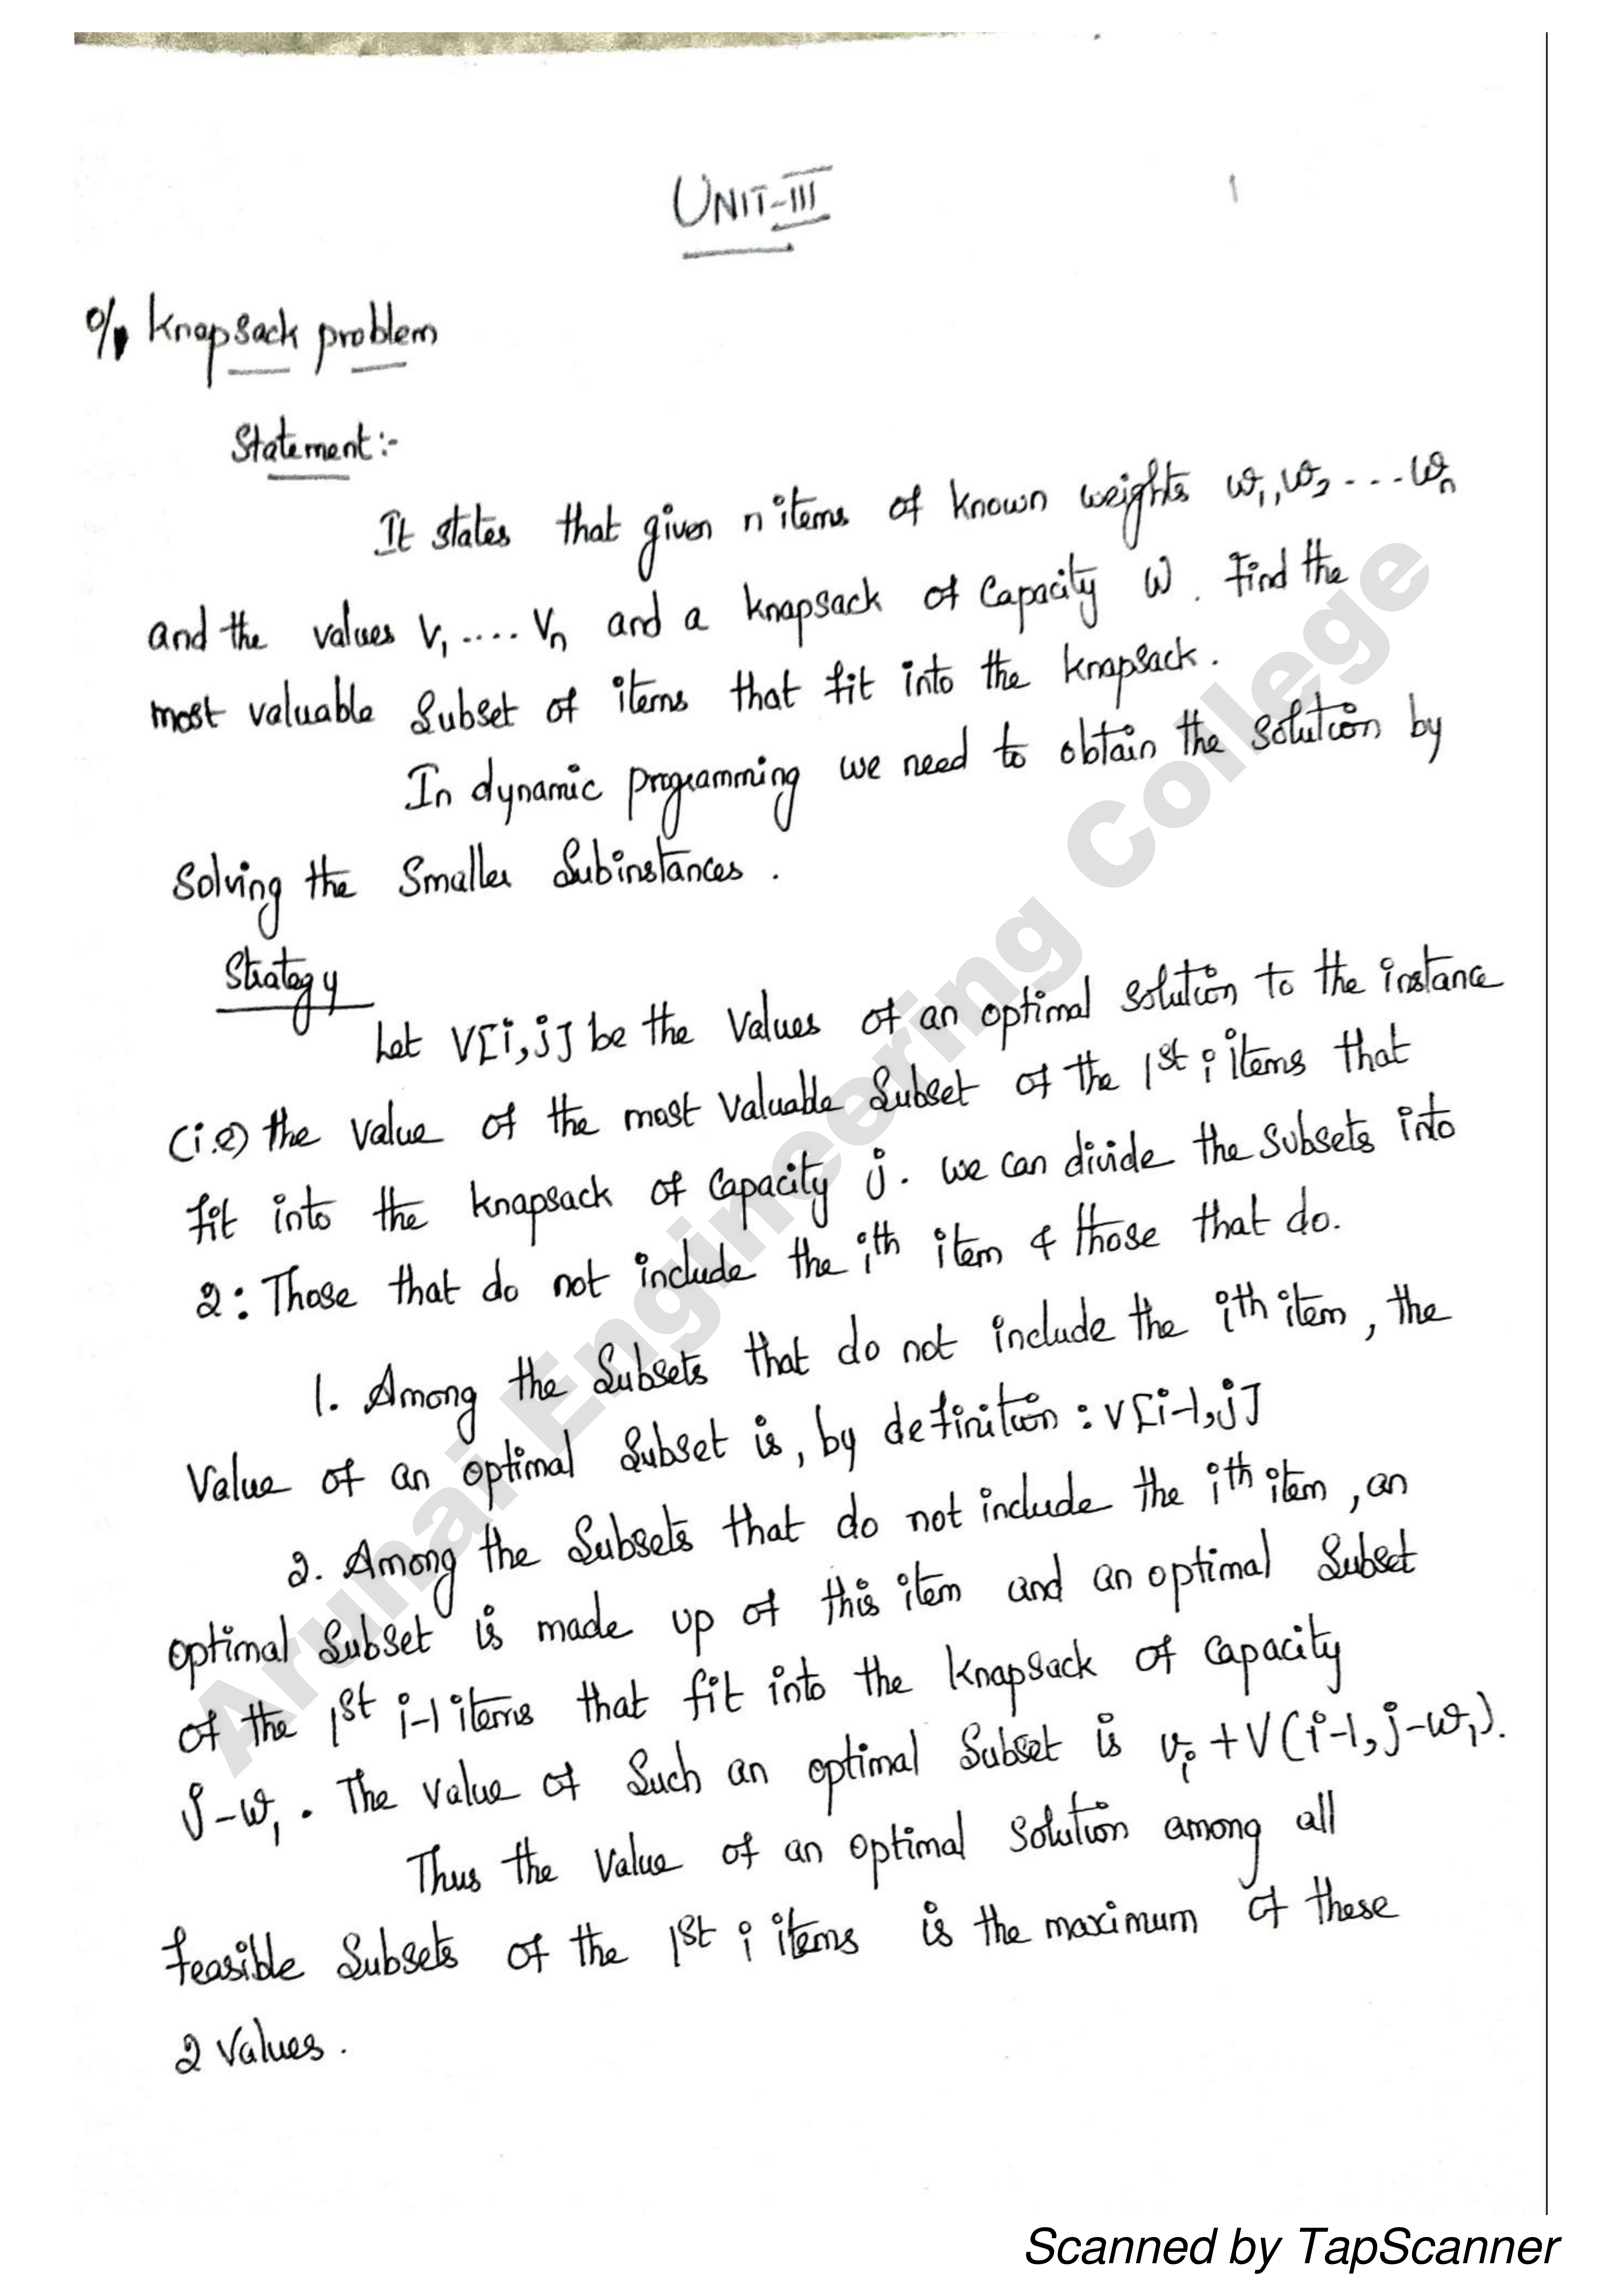 UNIT-III
1
0/1 Knapsack problem
Statement:-
It states that given n items of known weights w1, w2 ... wn
and the values v1 .... vn and a knapsack of capacity W. Find the
most valuable subset of items that fit into the knapsack.
In dynamic programming we need to obtain the solution by
solving the smaller subinstances.
Strategy
Let V[i,j] be the values of an optimal solution to the instance
(i.e) the value of the most valuable subset of the 1st i items that
fit into the knapsack of capacity j. we can divide the subsets into
2: Those that do not include the ith item & those that do.
1. Among the subsets that do not include the ith item, the
value of an optimal subset is, by definition : V[i-1,j]
2. Among the subsets that do not include the ith item, an
optimal subset is made up of this item and an optimal subset
of the 1st i-1 items that fit into the knapsack of capacity
j-w1. The value of such an optimal subset is vi + V(i-1, j-w1).
Thus the value of an optimal solution among all
feasible subsets of the 1st i items is the maximum of these
2 values.
Arunai Engineering College
Scanned by TapScanner